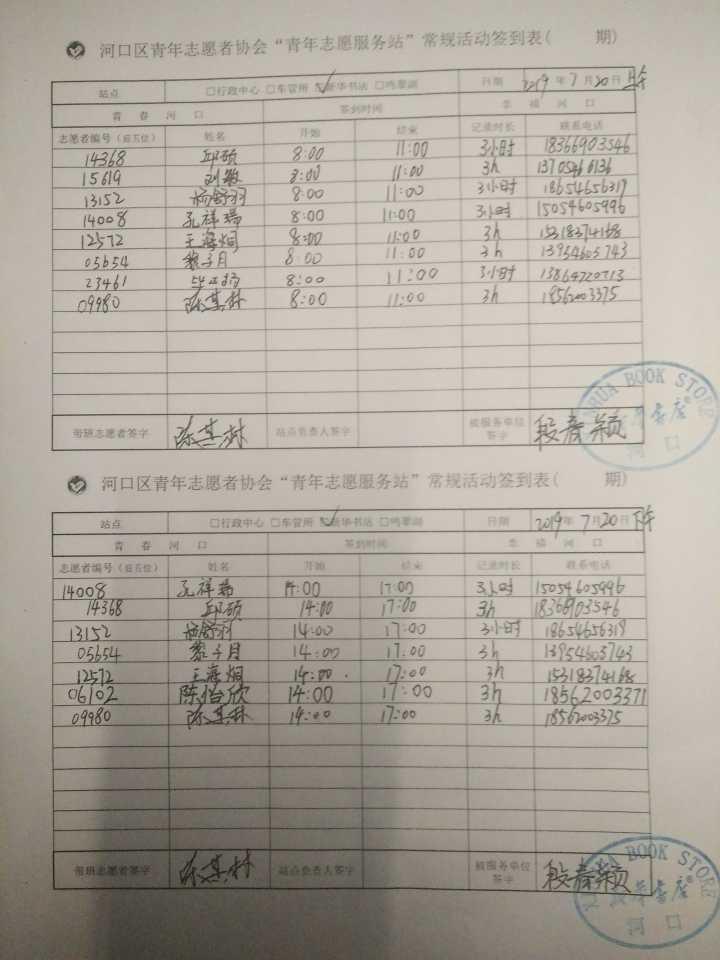 河口区青年志愿者协会“青年志愿服务站”常规活动签到表( 期)
站点 □行政中心 □车管所 ☑新华书店 □鸣翠湖 日期 2019年7月20日上午
青春河口 签到时间 幸福河口
志愿者编号(后五位) 姓名 开始 结束 记录时长 联系电话
14368 邱硕 8:00 11:00 3小时 18366903546
15619 刘敏 8:00 11:00 3h
13152 杨舒羽 8:00 11:00 3小时 18654656319
14008 孔祥瑞 8:00 11:00 3小时 15054605996
12572 王海烔 8:00 11:00 3h 15318374168
05654 黎子月 8:00 11:00 3h 13954605743
23461 8:00 11:00 3小时 13864720713
09980 陈其林 8:00 11:00 3h 18562003375
带班志愿者签字 陈其林 站点负责人签字 被服务单位签字 段春颖
XINHUA BOOK STORE
新华书店®
河口
河口区青年志愿者协会“青年志愿服务站”常规活动签到表( 期)
站点 □行政中心 □车管所 ☑新华书店 □鸣翠湖 日期 2019年7月20日下午
青春河口 签到时间 幸福河口
志愿者编号(后五位) 姓名 开始 结束 记录时长 联系电话
14008 孔祥瑞 14:00 17:00 3小时 15054605996
14368 邱硕 14:00 17:00 3h 18366903546
13152 杨舒羽 14:00 17:00 3小时 18654656319
05654 黎子月 14:00 17:00 3h 13954605743
12572 王海烔 14:00 17:00 3h 15318374168
06102 陈怡欣 14:00 17:00 3h 18562003371
09980 陈其林 14:00 17:00 3h 18562003375
带班志愿者签字 陈其林 站点负责人签字 被服务单位签字 段春颖
XINHUA BOOK STORE
新华书店®
河口